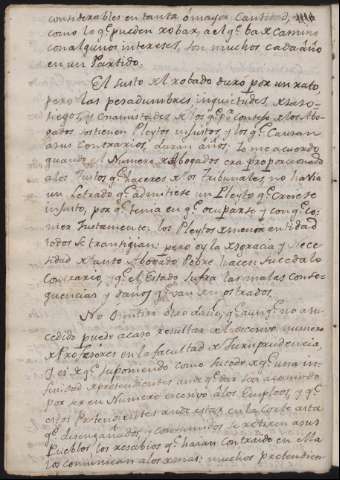 considerables en tanta ó mayor Cantidad,
como lo qe. pueden robar, á el qe. ba x camino
con algunos intereses, son muchos cada año
en un Partido.
El susto xl robado duró por un rato,
pero las pesadumbres, inquietudes, xsaso-
siegos, y enemistades xlos qe. p.r consejo xlos Abo-
gados sostienen Pleytos injustos, y los qe. Causan
a sus contrarios, duran años; Yo me acuerdo
quando el Numero xAbogados era proporcionado
a los Justos qe. haceres xlos Tribunales no havia
un Letrado qe. admitiese un Pleyto qe. creiese
injusto, por qe. tenia en qe. ocuparse y con qe. co-
mer Justamente, los Pleytos xmenor entidad
todos se transigian; pero oy la xsgracia y nece-
sidad xtanto Abogado Pobre hacen suceda lo
Contrario, y qe. el Estado sufra las malas conse-
quencias y daños qe. van xmostrados.
No omitiré otro daño, qe. aunqe. no a su-
cedido puede acaso resultar xl excesivo numero
xProfesores en la facultad x Jurisprudencia,
y es xqe. suponiendo como sucede xqe. una in-
finidad xpretendientes
por ser en Numero excesivo a los Empleos, y qe.
estos Pretendientes en la Corte asta
qe. desengañados, y consumidos se retiren a sus
Pueblos, los resabios qe. haian contraido en Ma
los comunican a los xmas; muchos pretendien